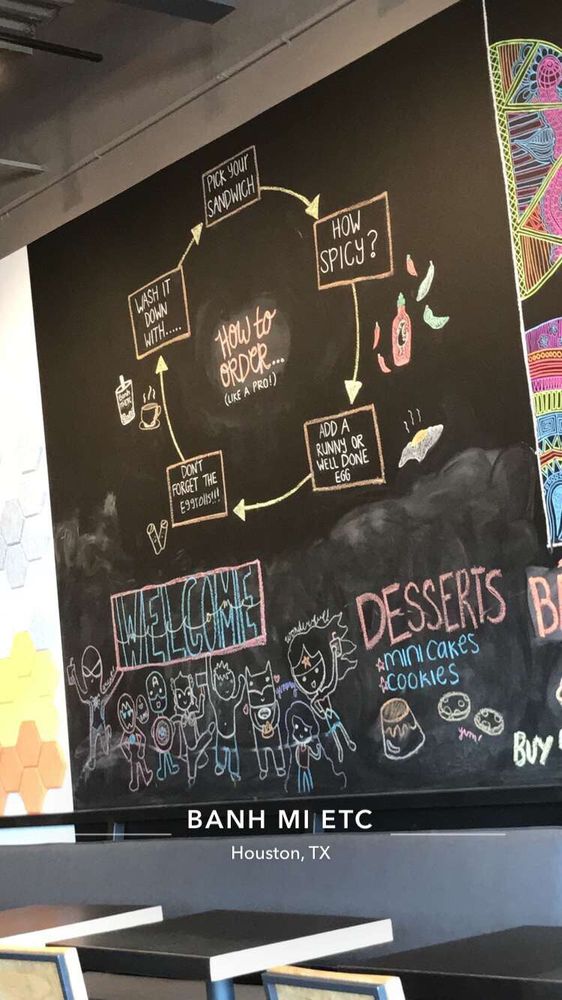 PICK YOUR
SANDWICH
HOW
SPICY?
ADD A
RUNNY OR
WELL DONE
EGG
DON'T
FORGET THE
EGGROLLS!!!
WASH IT
DOWN
WITH.....
HOW to
ORDER...
(LIKE A PRO!)
WELCOME
DESSERTS
MINI CAKES
COOKIES
yum!
BUY
BANH MI ETC
Houston, TX